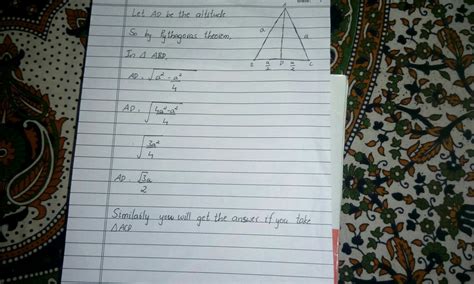 Let AD be the altitude
So by Pythagoras theorem,
In Δ ABD,
AD = √a² - a²/4
AD = √4a² - a²/4
√3a²/4
AD = √3a/2
Similarly you will get the answer if you take
Δ ACD
a a
B a/2 D a/2 C